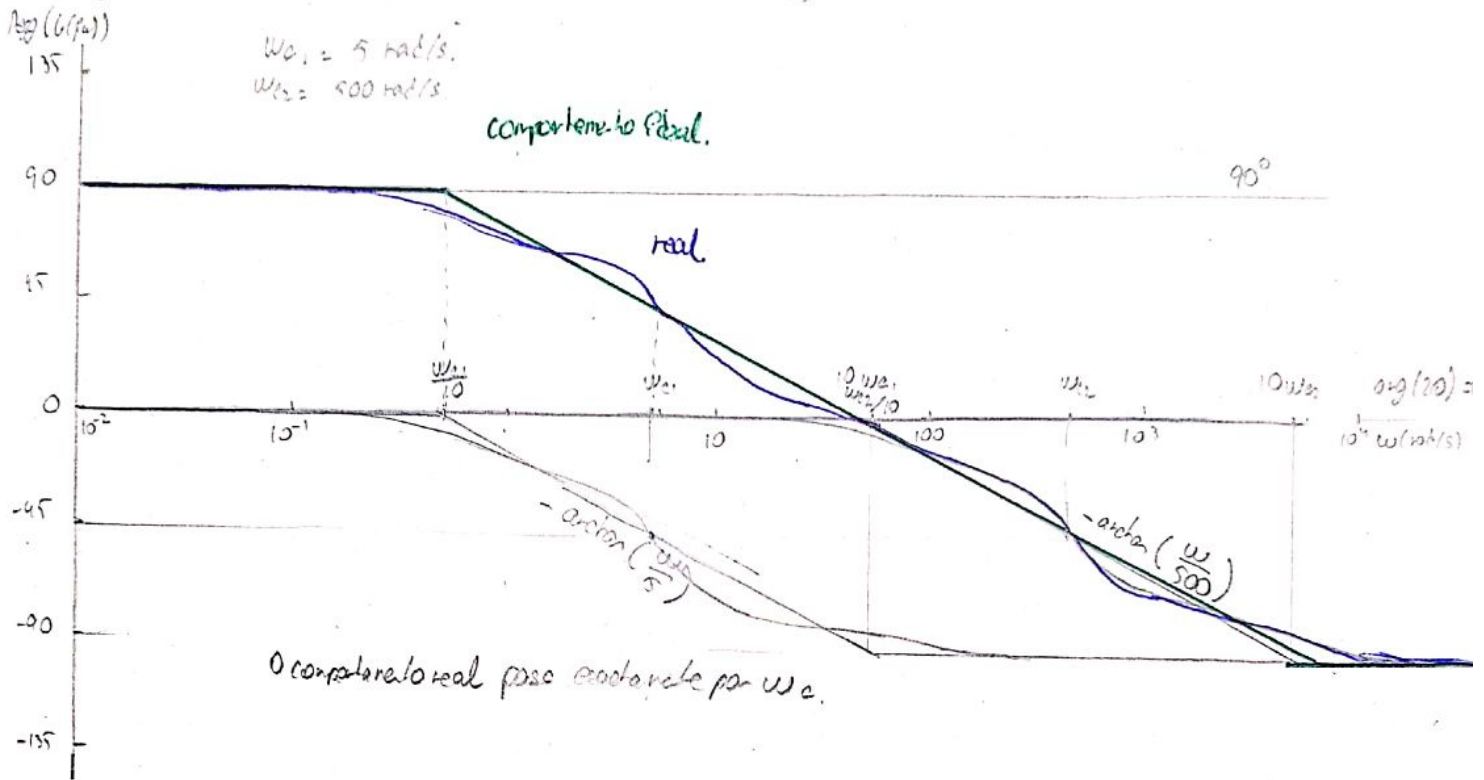 Arg(G(jω))
135
ωc₁ = 5 rad/s.
ωc₂ = 500 rad/s.
comportamento ideal.
90
90°
real.
45
ωc₁/10
ωc₁
10 ωc₁
ωc₂/10
ωc₂
10ωc₂
arg(20) =
0
10⁻²
10⁻¹
10
100
10³
10⁴ ω(rad/s)
-45
-arctan(ω/5)
-arctan(ω/500)
-90
O comportamento real pasa exactamente por ωc.
-135